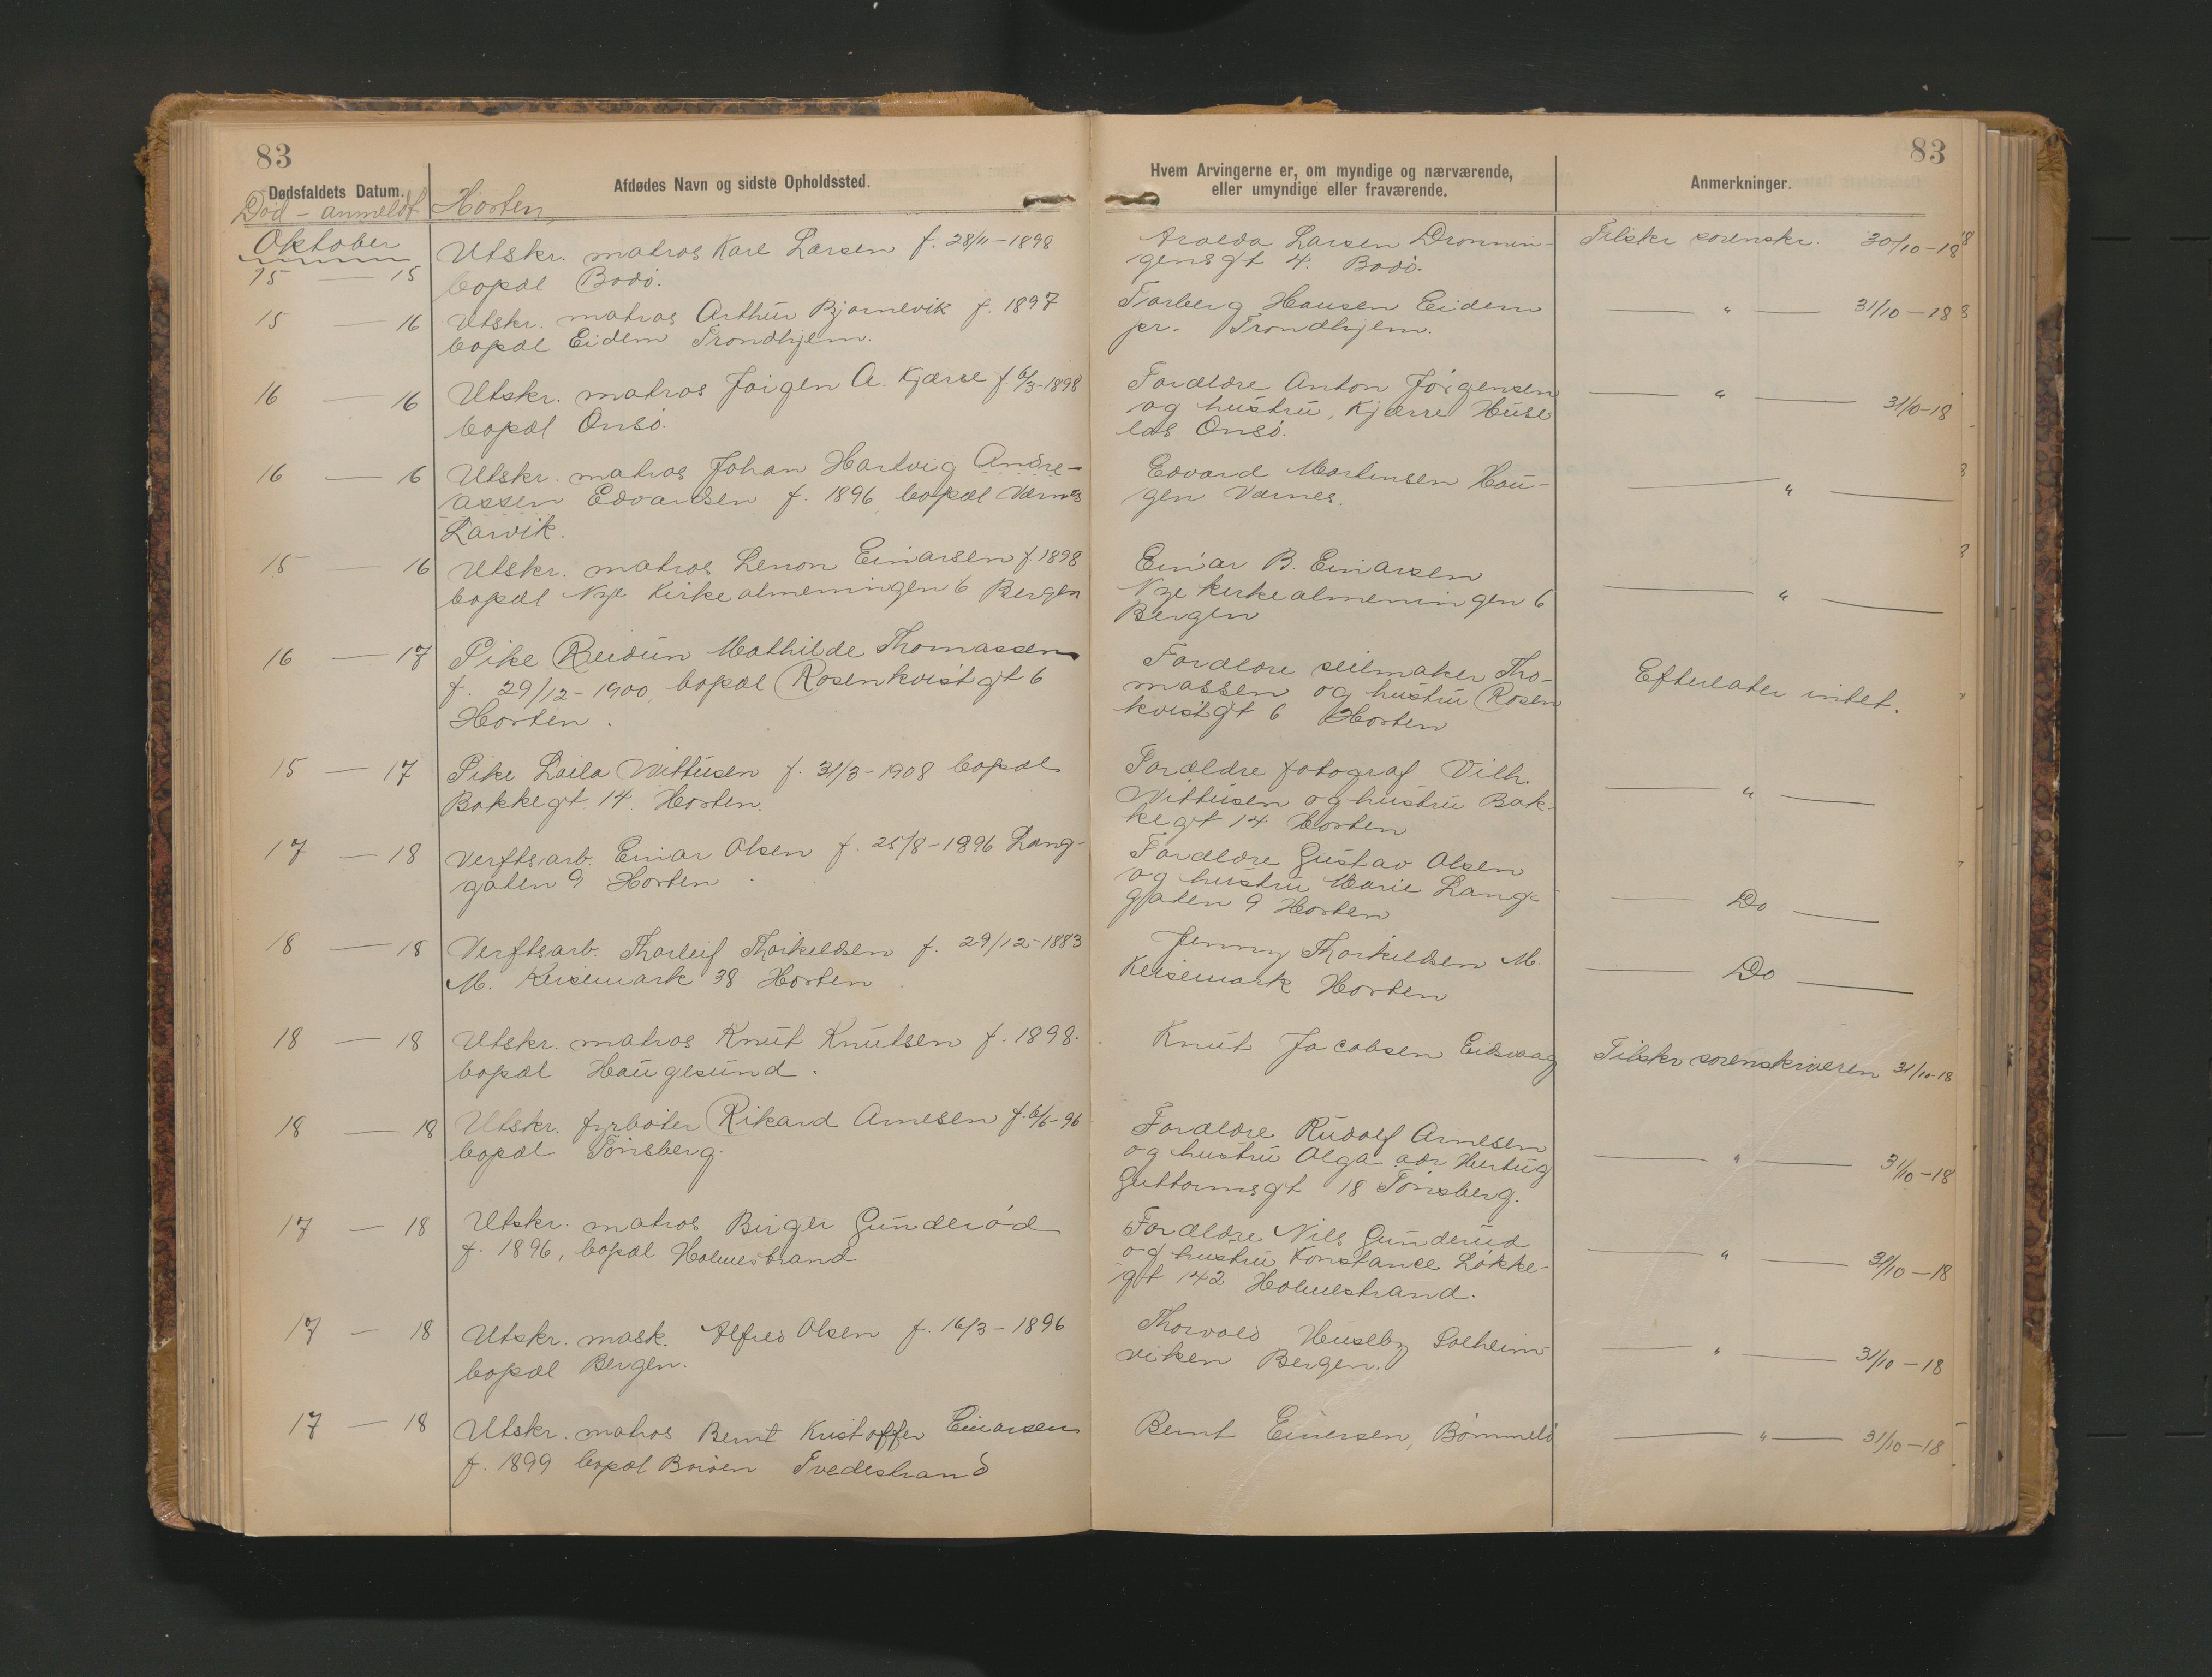 83
83
Dødsfaldets Datum.
Afdødes Navn og sidste Opholdssted.
Hvem Arvingerne er, om myndige og nærværende,
eller umyndige eller fraværende.
Anmerkninger.
Død - anmeldt
Horten
Oktober
15 — 15
Utskr. matros Karl Larsen f. 28/11-1898
bopæl Bodø.
Larsen Dronnin-
gensgt 4. Bodø.
Tilskr sorenskr. 30/10-18
15 — 16
Utskr. matros Arthur Bjørnevik f. 1897
bopæl Eidem Trondhjem.
Hansen Eidem
pr. Trondhjem.
— " — 31/10-18
16 — 16
Utskr. matros Jørgen A. Kjærre f. 6/3-1898
bopæl Onsø.
Forældre Anton Jørgensen
og hustru, Kjærre Huse
løs Onsø.
— " — 31/10-18
16 — 16
Utskr. matros Johan Hartvig Andre-
assen Edvardsen f. 1896, bopæl Værnes
Larvik.
Edvard Martinsen Hau-
gen Værnes.
— " —
15 — 16
Utskr. matros Lenon Einarsen f. 1898
bopæl Nye Kirkealmeningen 6 Bergen
Einar B. Einarsen
Nye kirkealmeningen 6
Bergen
— " —
16 — 17
Pike Reidun Mathilde Thomassen
f. 29/12-1900, bopæl Rosenkvistgt 6
Horten.
Forældre seilmaker Tho-
massen og hustru Rosen
kvistgt 6 Horten
Efterlater intet.
15 — 17
Pike Laila Wittusen f. 31/3-1908 bopæl
Bakkegt. 14. Horten.
Forældre fotograf Vilh.
Wittusen og hustru Bak-
kegt 14 Horten
— " —
17 — 18
Verftsarb. Einar Olsen f. 25/8-1896 Lang-
gaten 9 Horten.
Forældre Gustav Olsen
og hustru Marie Lang-
gaten 9 Horten
— Do —
18 — 18
Verftsarb. Thorleif Thorkildsen f. 29/12-1883
M. Keisemark 38 Horten.
Jenny Thorkildsen M.
Keisemark Horten
— Do —
18 — 18
Utskr. matros Knut Knutsen f. 1898.
bopæl Haugesund.
Knut Jacobsen Eidsvaag
Tilskr sorenskriveren 31/10-18
18 — 18
Utskr. fyrbøter Rikard Arnesen f. 6/6-96
bopæl Tønsberg.
Forældre Rudolf Arnesen
og hustru Olga adr Hertug
Guttormsgt 18 Tønsberg.
— " — 31/10-18
17 — 18
Utskr. matros Birger Gunderød
f. 1896, bopæl Holmestrand
Forældre Nils Gunderud
og hustru Konstance Løkke-
gt 142 Holmestrand.
— " — 31/10-18
17 — 18
Utskr. mask. Alfred Olsen f. 16/3-1896
bopæl Bergen.
Thorvald Huseby Solheim-
viken Bergen.
— " — 31/10-18
17 — 18
Utskr. matros Bernt Kristoffer Einarsen
f. 1899 bopæl Tvedestrand
Bernt Einersen, Bømmelø
— " — 31/10-18